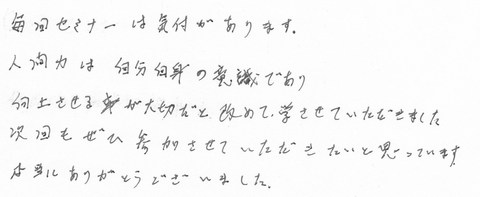 毎回セミナーは気付があります。
人間力は自分自身の意識であり
向上させる事が大切だと改めて、学させていただきました
次回もぜひ参加させていただきたいと思っています
本当にありがとうございました。